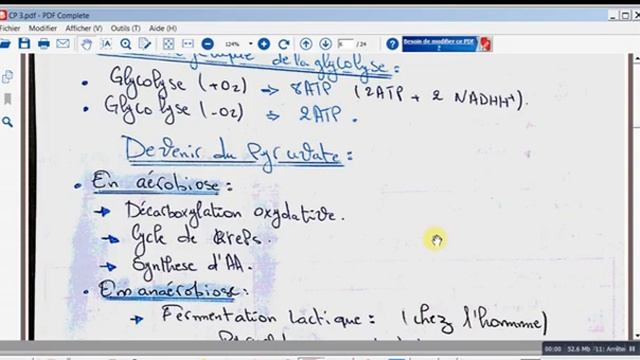 CP 3.pdf - PDF Complete
Fichier Modifier Affichage (V) Outils (T) Aide (H)
124% 6 / 24 Besoin de modifier ce PDF ?
de la glycolyse :
• Glycolyse (+O2) → 8ATP (2ATP + 2 NADHH+).
• Glycolyse (-O2) → 2ATP.
Devenir du Pyruvate :
• En aérobiose :
→ Décarboxylation oxydative.
→ Cycle de Kreps.
→ Synthese d'AA.
• En anaérobiose :
→ Fermentation lactique : (chez l'homme)
00:00 52.6 Mb